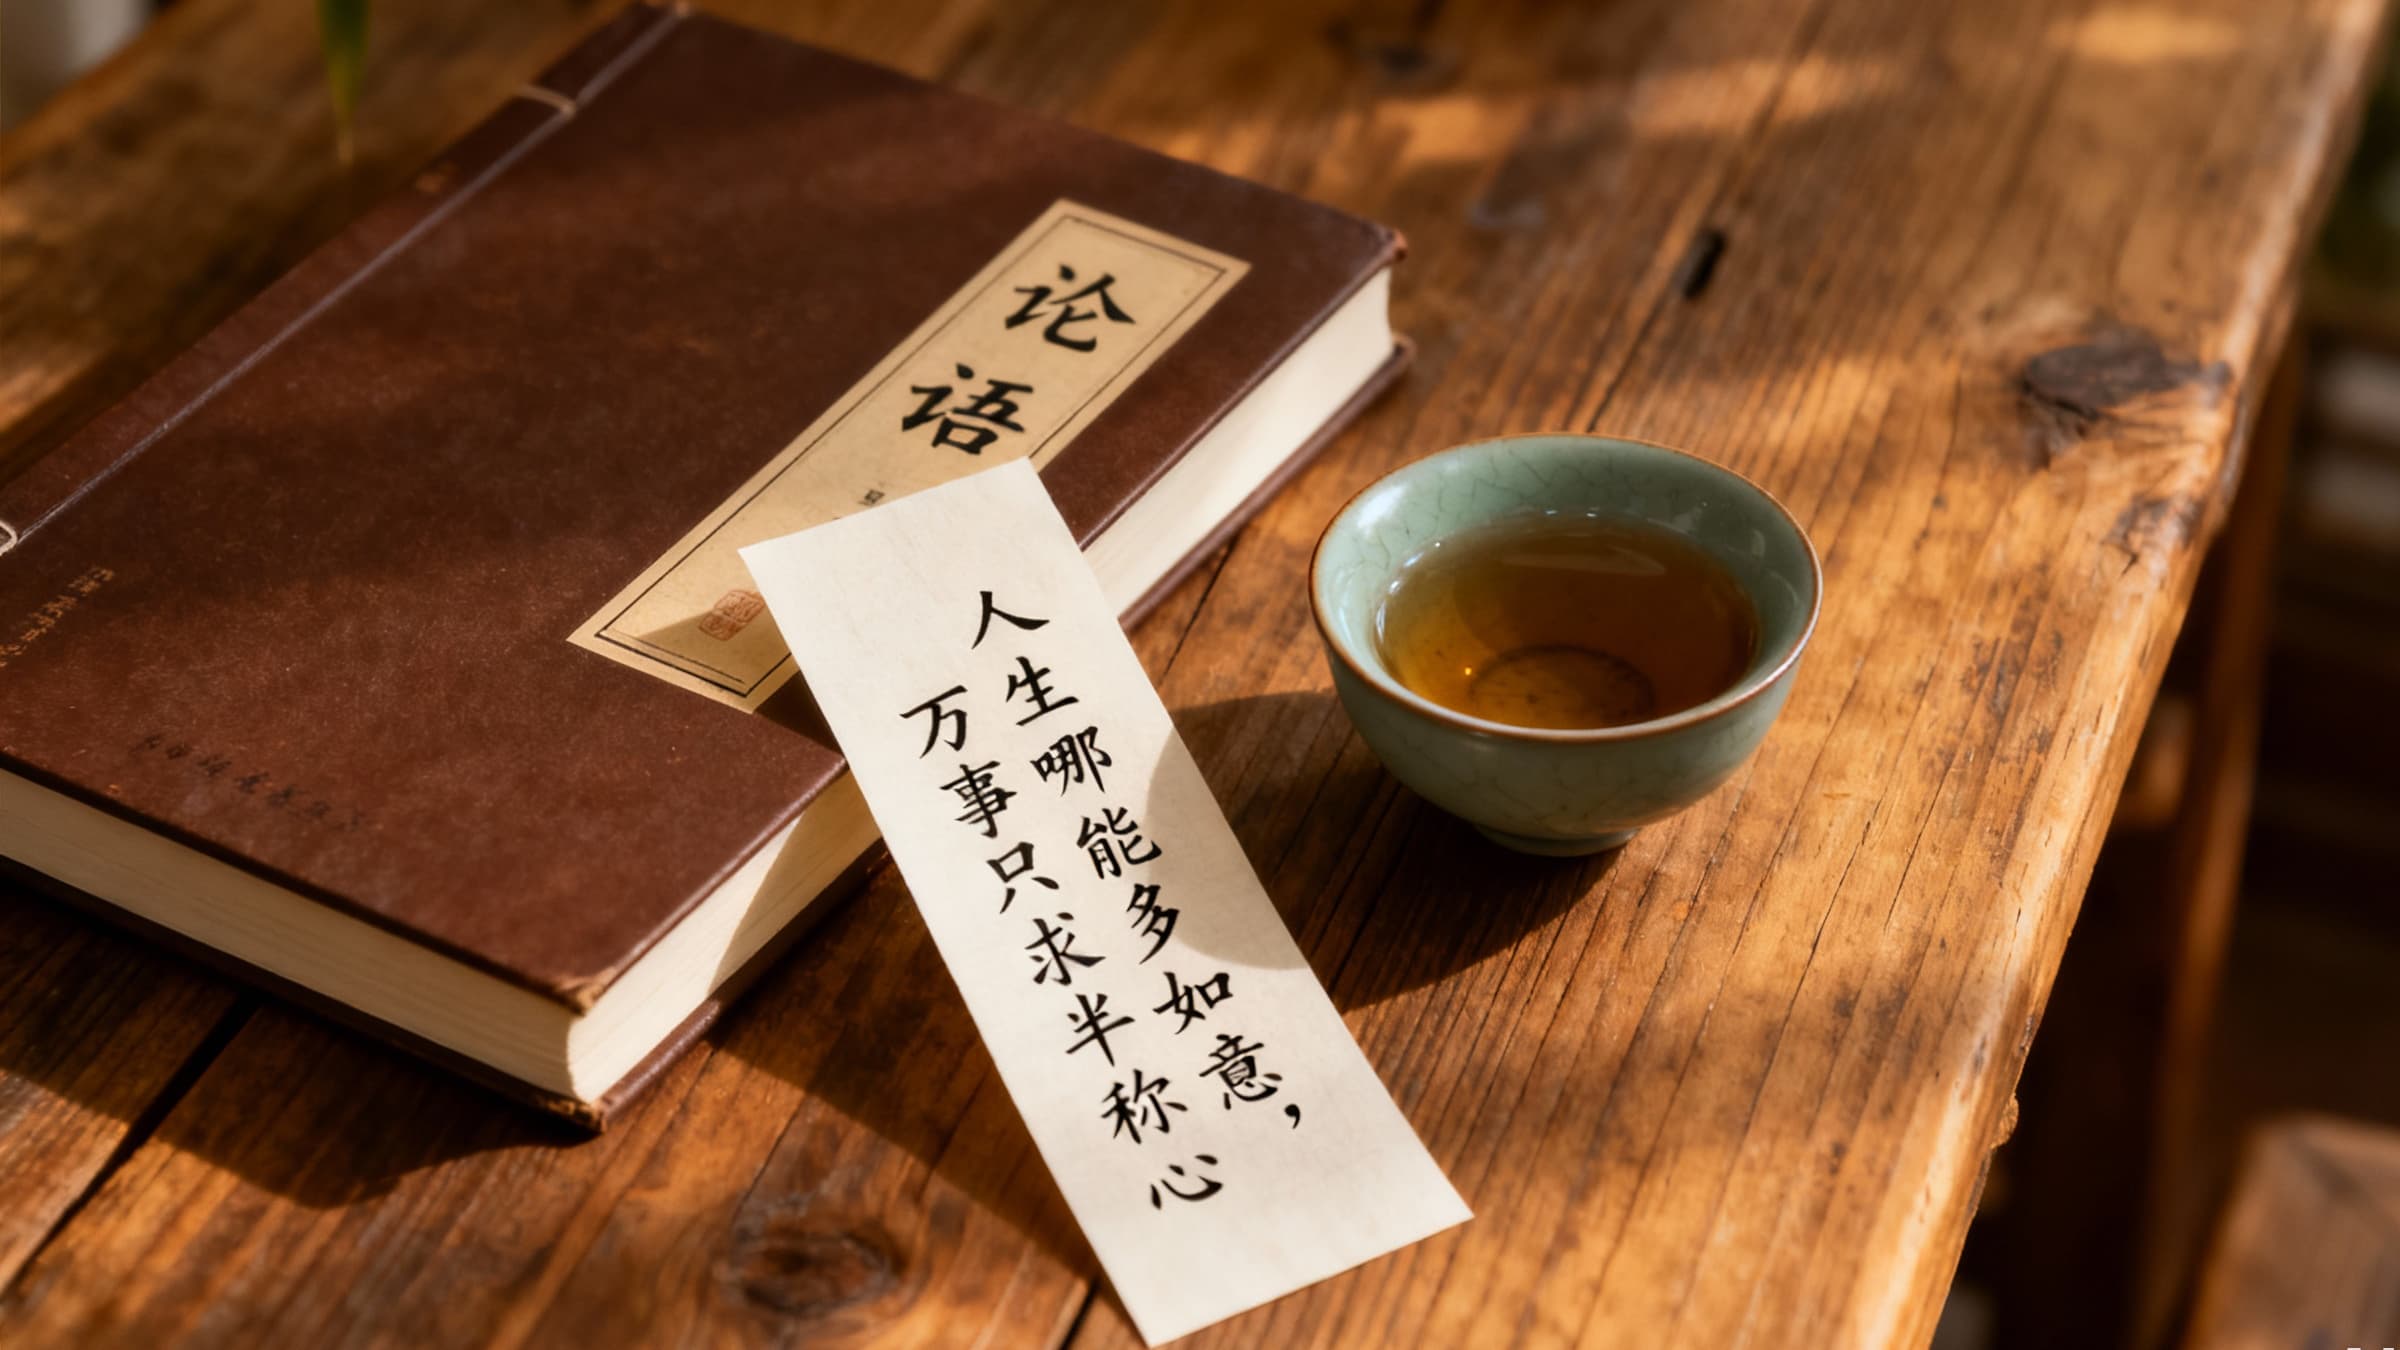 论语
人生哪能多如意，
万事只求半称心